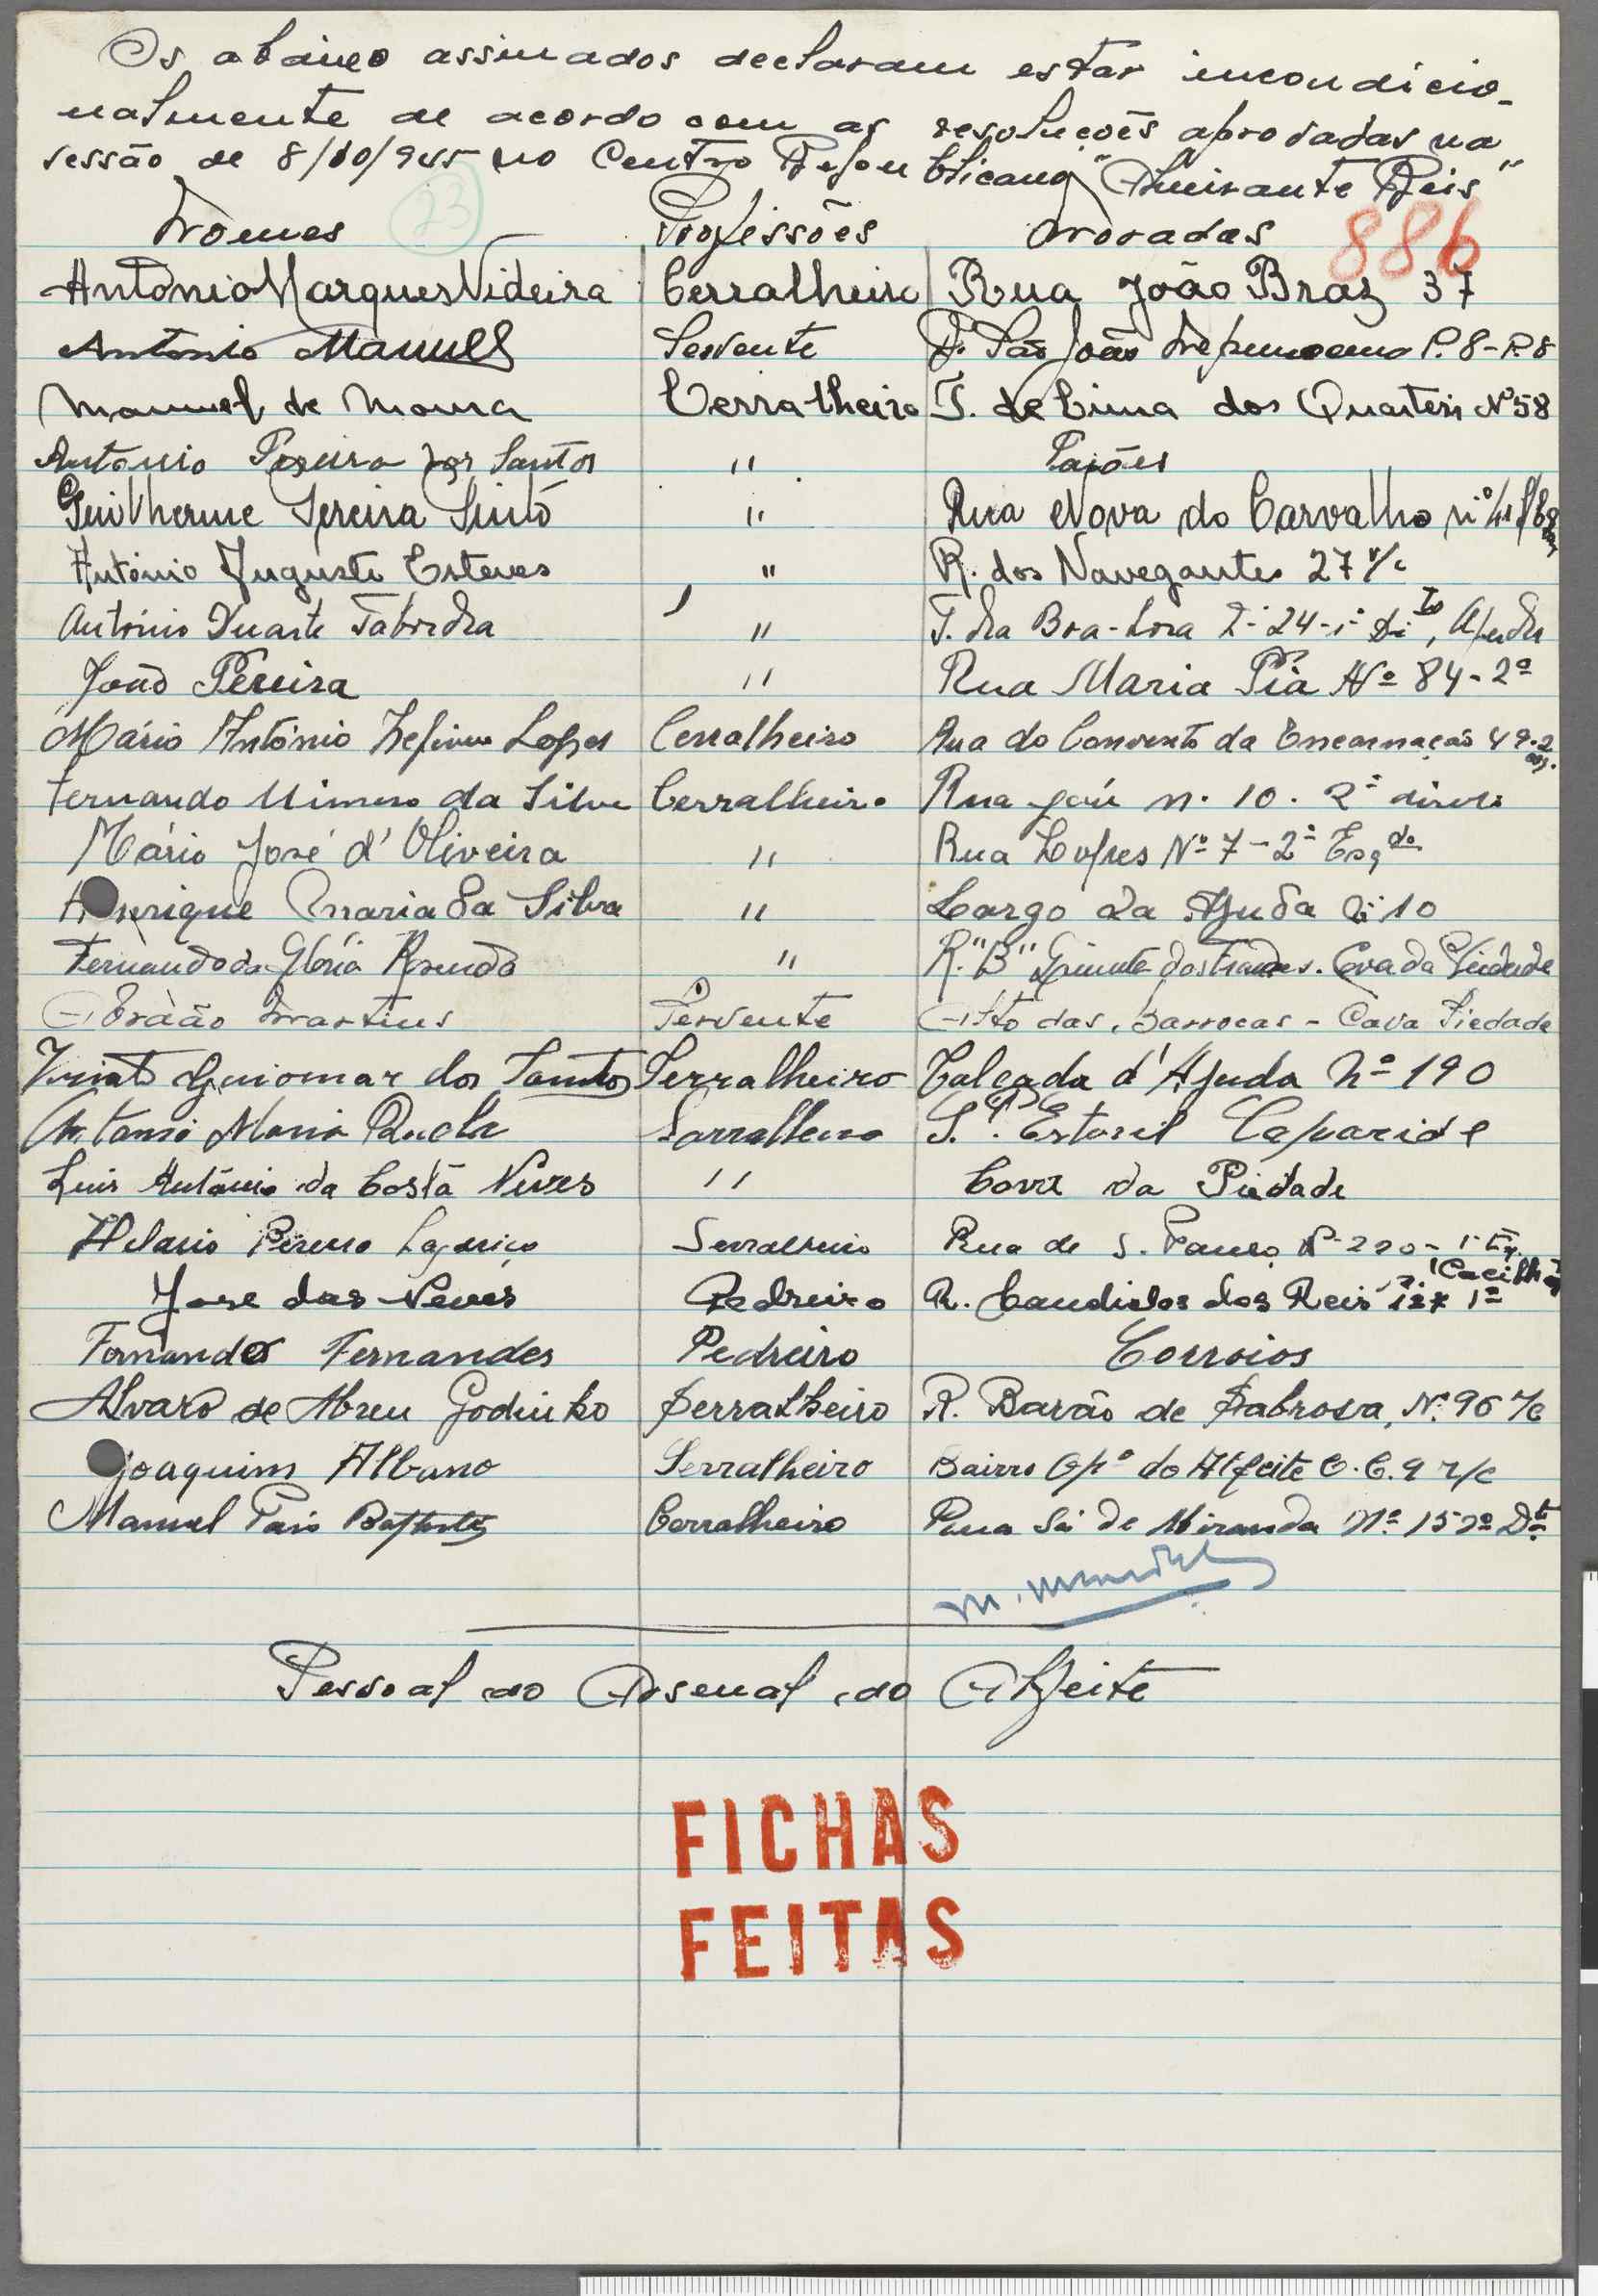 Os abaixo assinados declaram estar incondicio-
nalmente de acordo com as resoluções aprovadas na
sessão de 8/10/945 no Centro Republicano "Almirante Reis"
Nomes 23 Profissões Moradas 886
António Marques Videira Cerralheiro Rua João Braz 37
António Manuel Servente R. São João Nepumoceno P. 8 - R. 8
Manuel de Moura Cerralheiro T. de Cima dos Quarteis Nº 58
António Pereira dos Santos " Paiões
Guilherme Pereira Pinto " Rua Nova do Carvalho nº 41
António Augusto Esteves " R. dos Navegantes 27 r/c
António Duarte Taborda " T. da Boa-Hora 24-1º Dto, Ajuda
João Pereira " Rua Maria Pia Nº 84-2º
Mário António Lopes Cerralheiro Rua do Convento da Encarnação 49-2
Fernando da Silva Cerralheiro Rua Jaú n. 10. 2º direito
Mário José d'Oliveira " Rua Lopes Nº 7-2º Esqdo
Henrique Maria da Silva " Largo da Ajuda nº 10
Fernando da Glória " R. "B" Quinta dos Frades. Cova da Piedade
Abraão Martins Servente Alto das Barrocas - Cova Piedade
Viriato Guiomar dos Santos Serralheiro Calçada d'Ajuda Nº 190
António Maria Serralheiro S. P. Estoril Caparide
Luis António da Costa Neves " Cova da Piedade
Hilario Pereira Serralheiro Rua de S. Paulo Nº 220-1º Eq.
Jose das Neves Pedreiro R. Candidos dos Reis 127 1º Cacilhas
Fernando Fernandes Pedreiro Corroios
Alvaro de Abreu Godinho Serralheiro R. Barão de Sabrosa, Nº 96 r/c
Joaquim Albano Serralheiro Bairro Opº do Alfeite C. C. 9 r/c
Manuel Pais Baptista Cerralheiro Rua Sá de Miranda Nº 15 2º Dtº
Pessoal do Arsenal do Alfeite
FICHAS
FEITAS